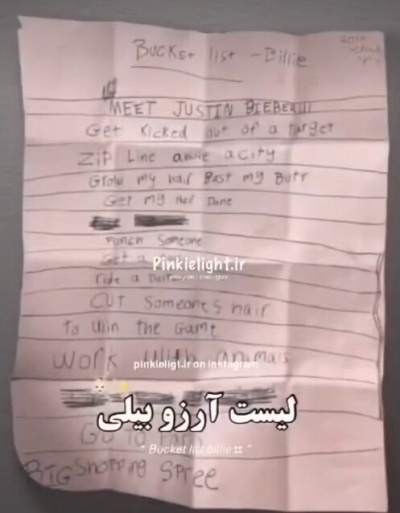 BUCKET list - Billie
MEET JUSTIN BIEBER!!!
Get kicked out of a target
Zip Line above a city
Grow my hair Past my Butt
Get my Hair Done
Punch Someone
Get a
Pinkielight.ir
ride a
CUT Someones hair
to win the Game
Work with animals
pinkieligt.ir on instagram
لیست آرزو بیلی
Go to
" Bucket list billie "
BIG Shopping SPree